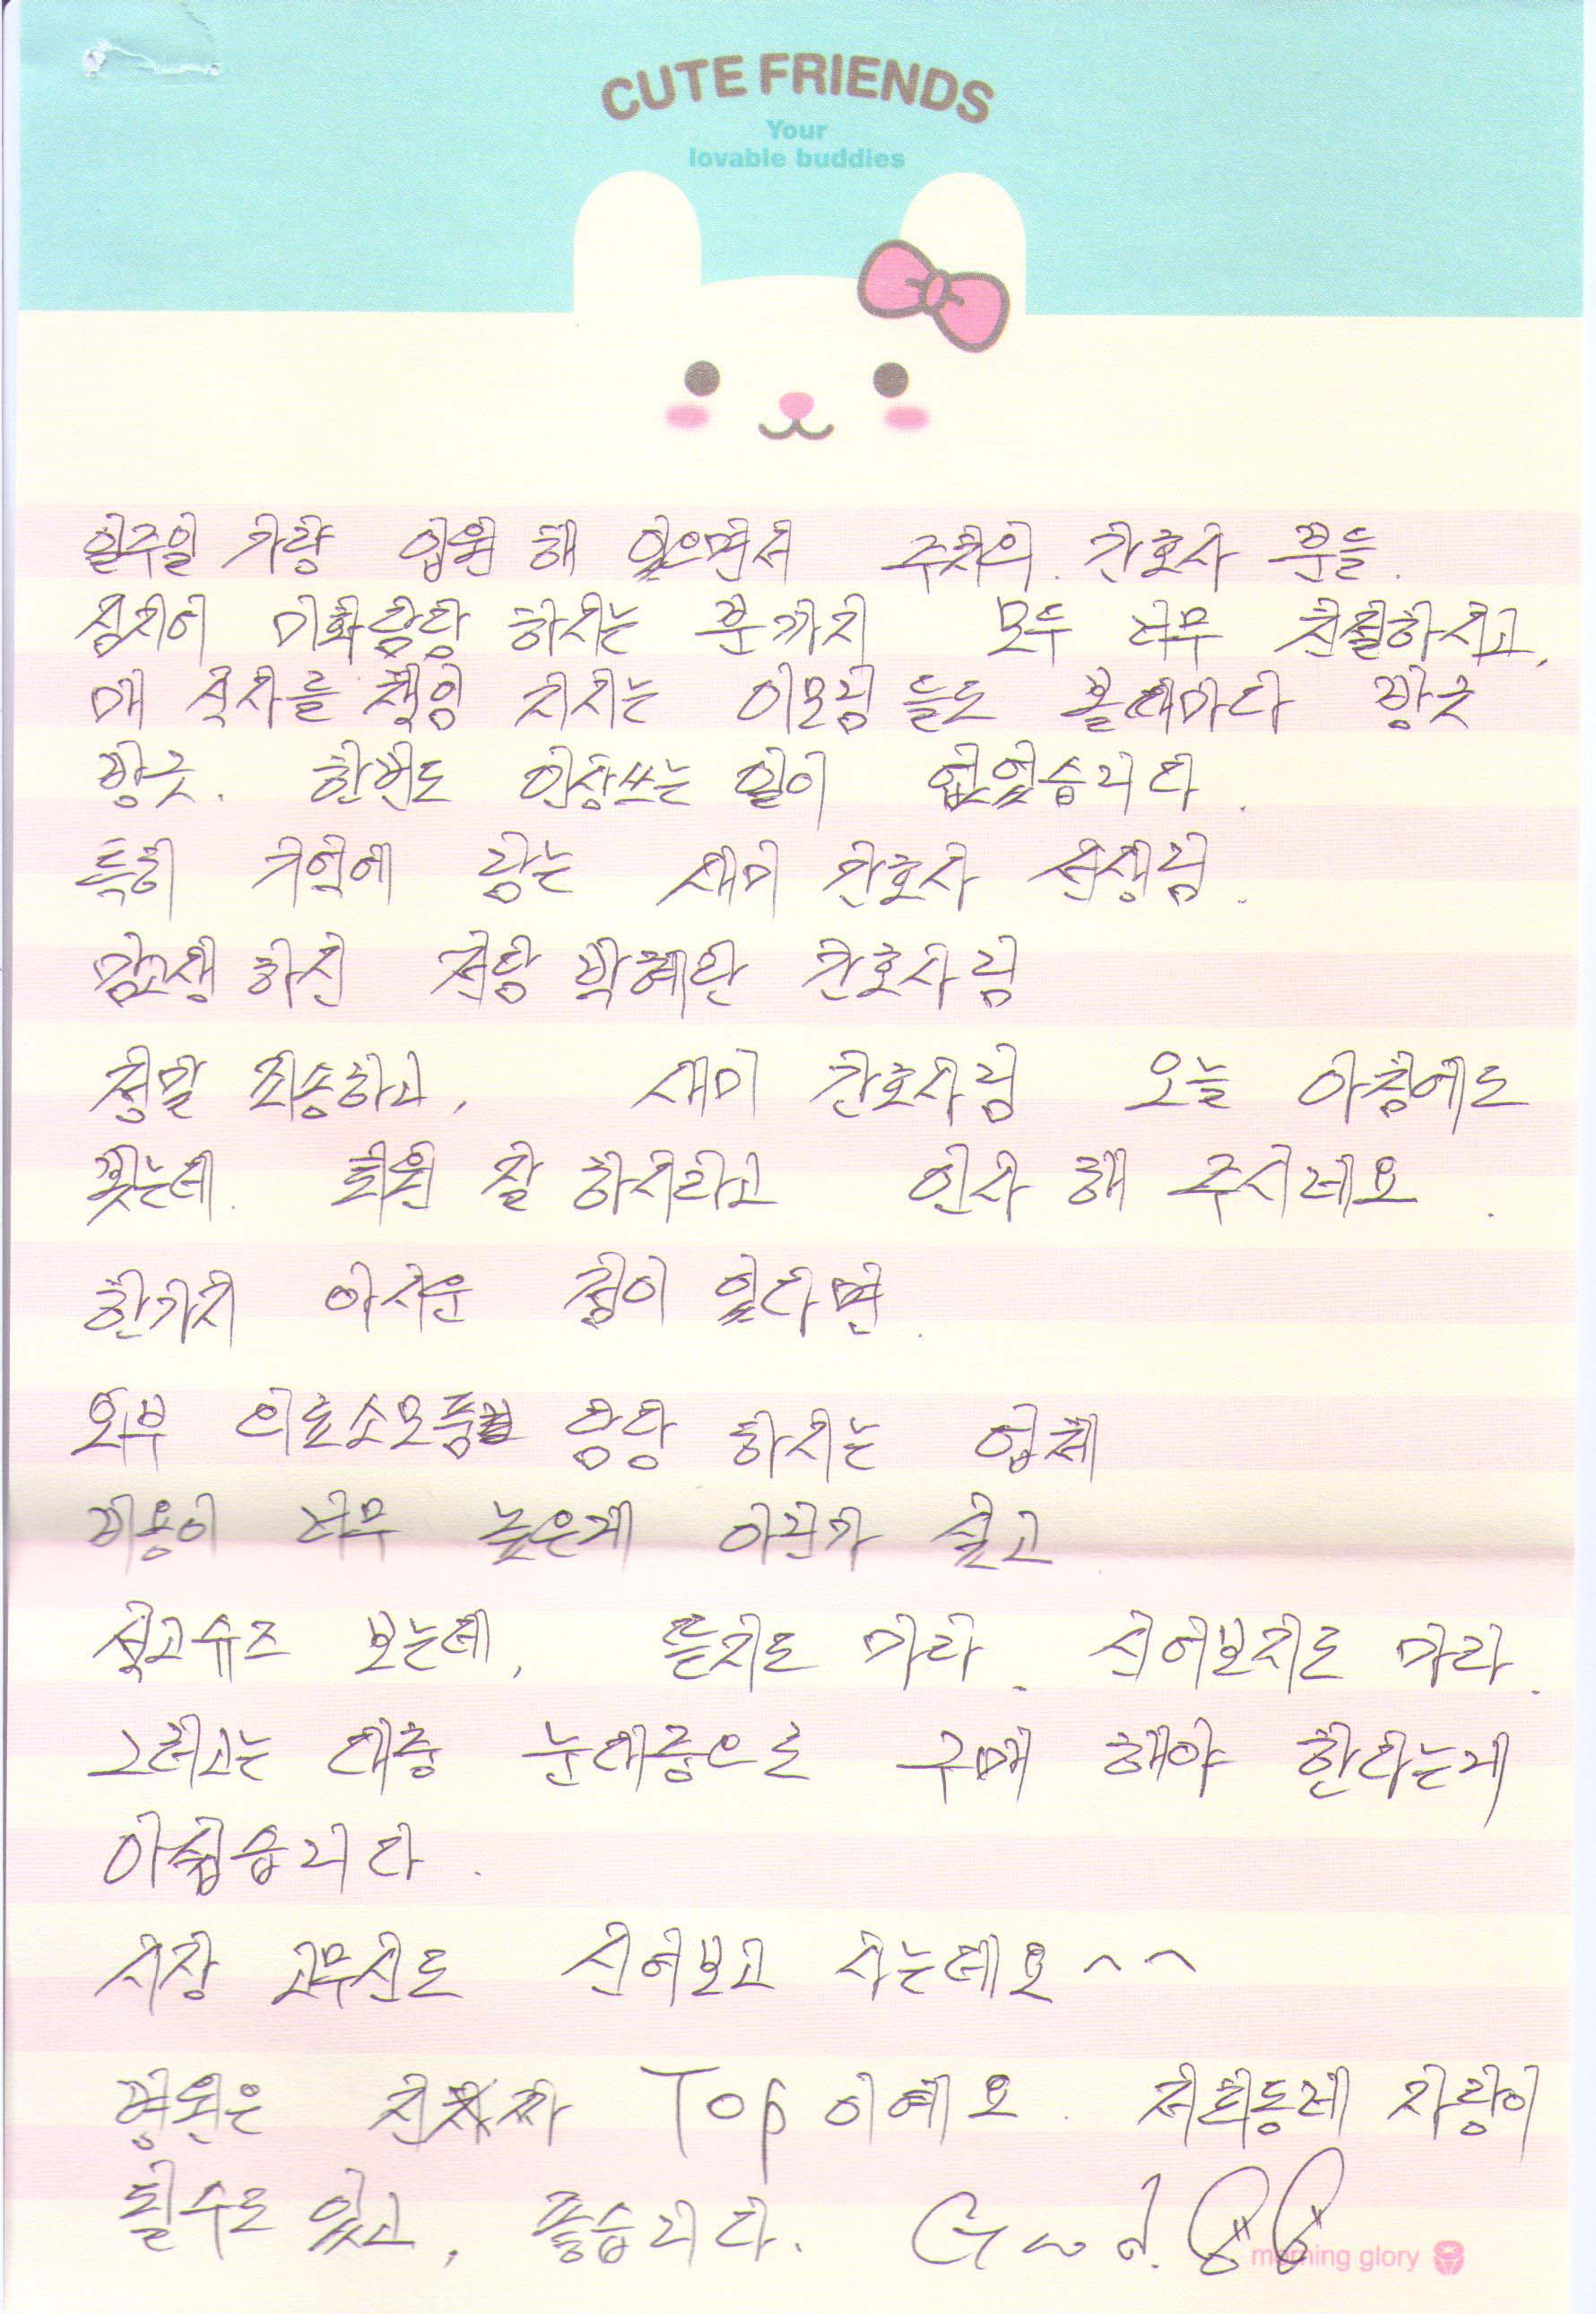 CUTE FRIENDS
Your
lovable buddies
일주일 가량 입원 해 있으면서 주치의. 간호사 분들.
심지어 미화담당 하시는 분까지 모두 너무 친절하시고,
매 식사를 책임 지시는 이모님 들도 볼때마다 방긋
방긋. 한번도 인상쓰는 일이 없었습니다.
특히 기억에 남는 새미 간호사 선생님.
맘고생 하신 전담 박혜란 간호사님
정말 죄송하고, 새미 간호사님 오늘 아침에도
뵛는데. 퇴원 잘 하시라고 인사 해 주시네요.
한가지 아쉬운 점이 있다면.
외부 의료소모품 담당 하시는 업체
비용이 너무 높은게 아닌가 싶고
석고슈즈 보는데, 뜯지도 마라. 신어보지도 마라.
그러고는 대충 눈대중으로 구매 해야 한다는게
아쉽습니다.
시장 고무신도 신어보고 사는데요^^
병원은 진짜 Top 이예요. 저희동네 자랑이
될수도 있고, 좋습니다. Good.
morning glory